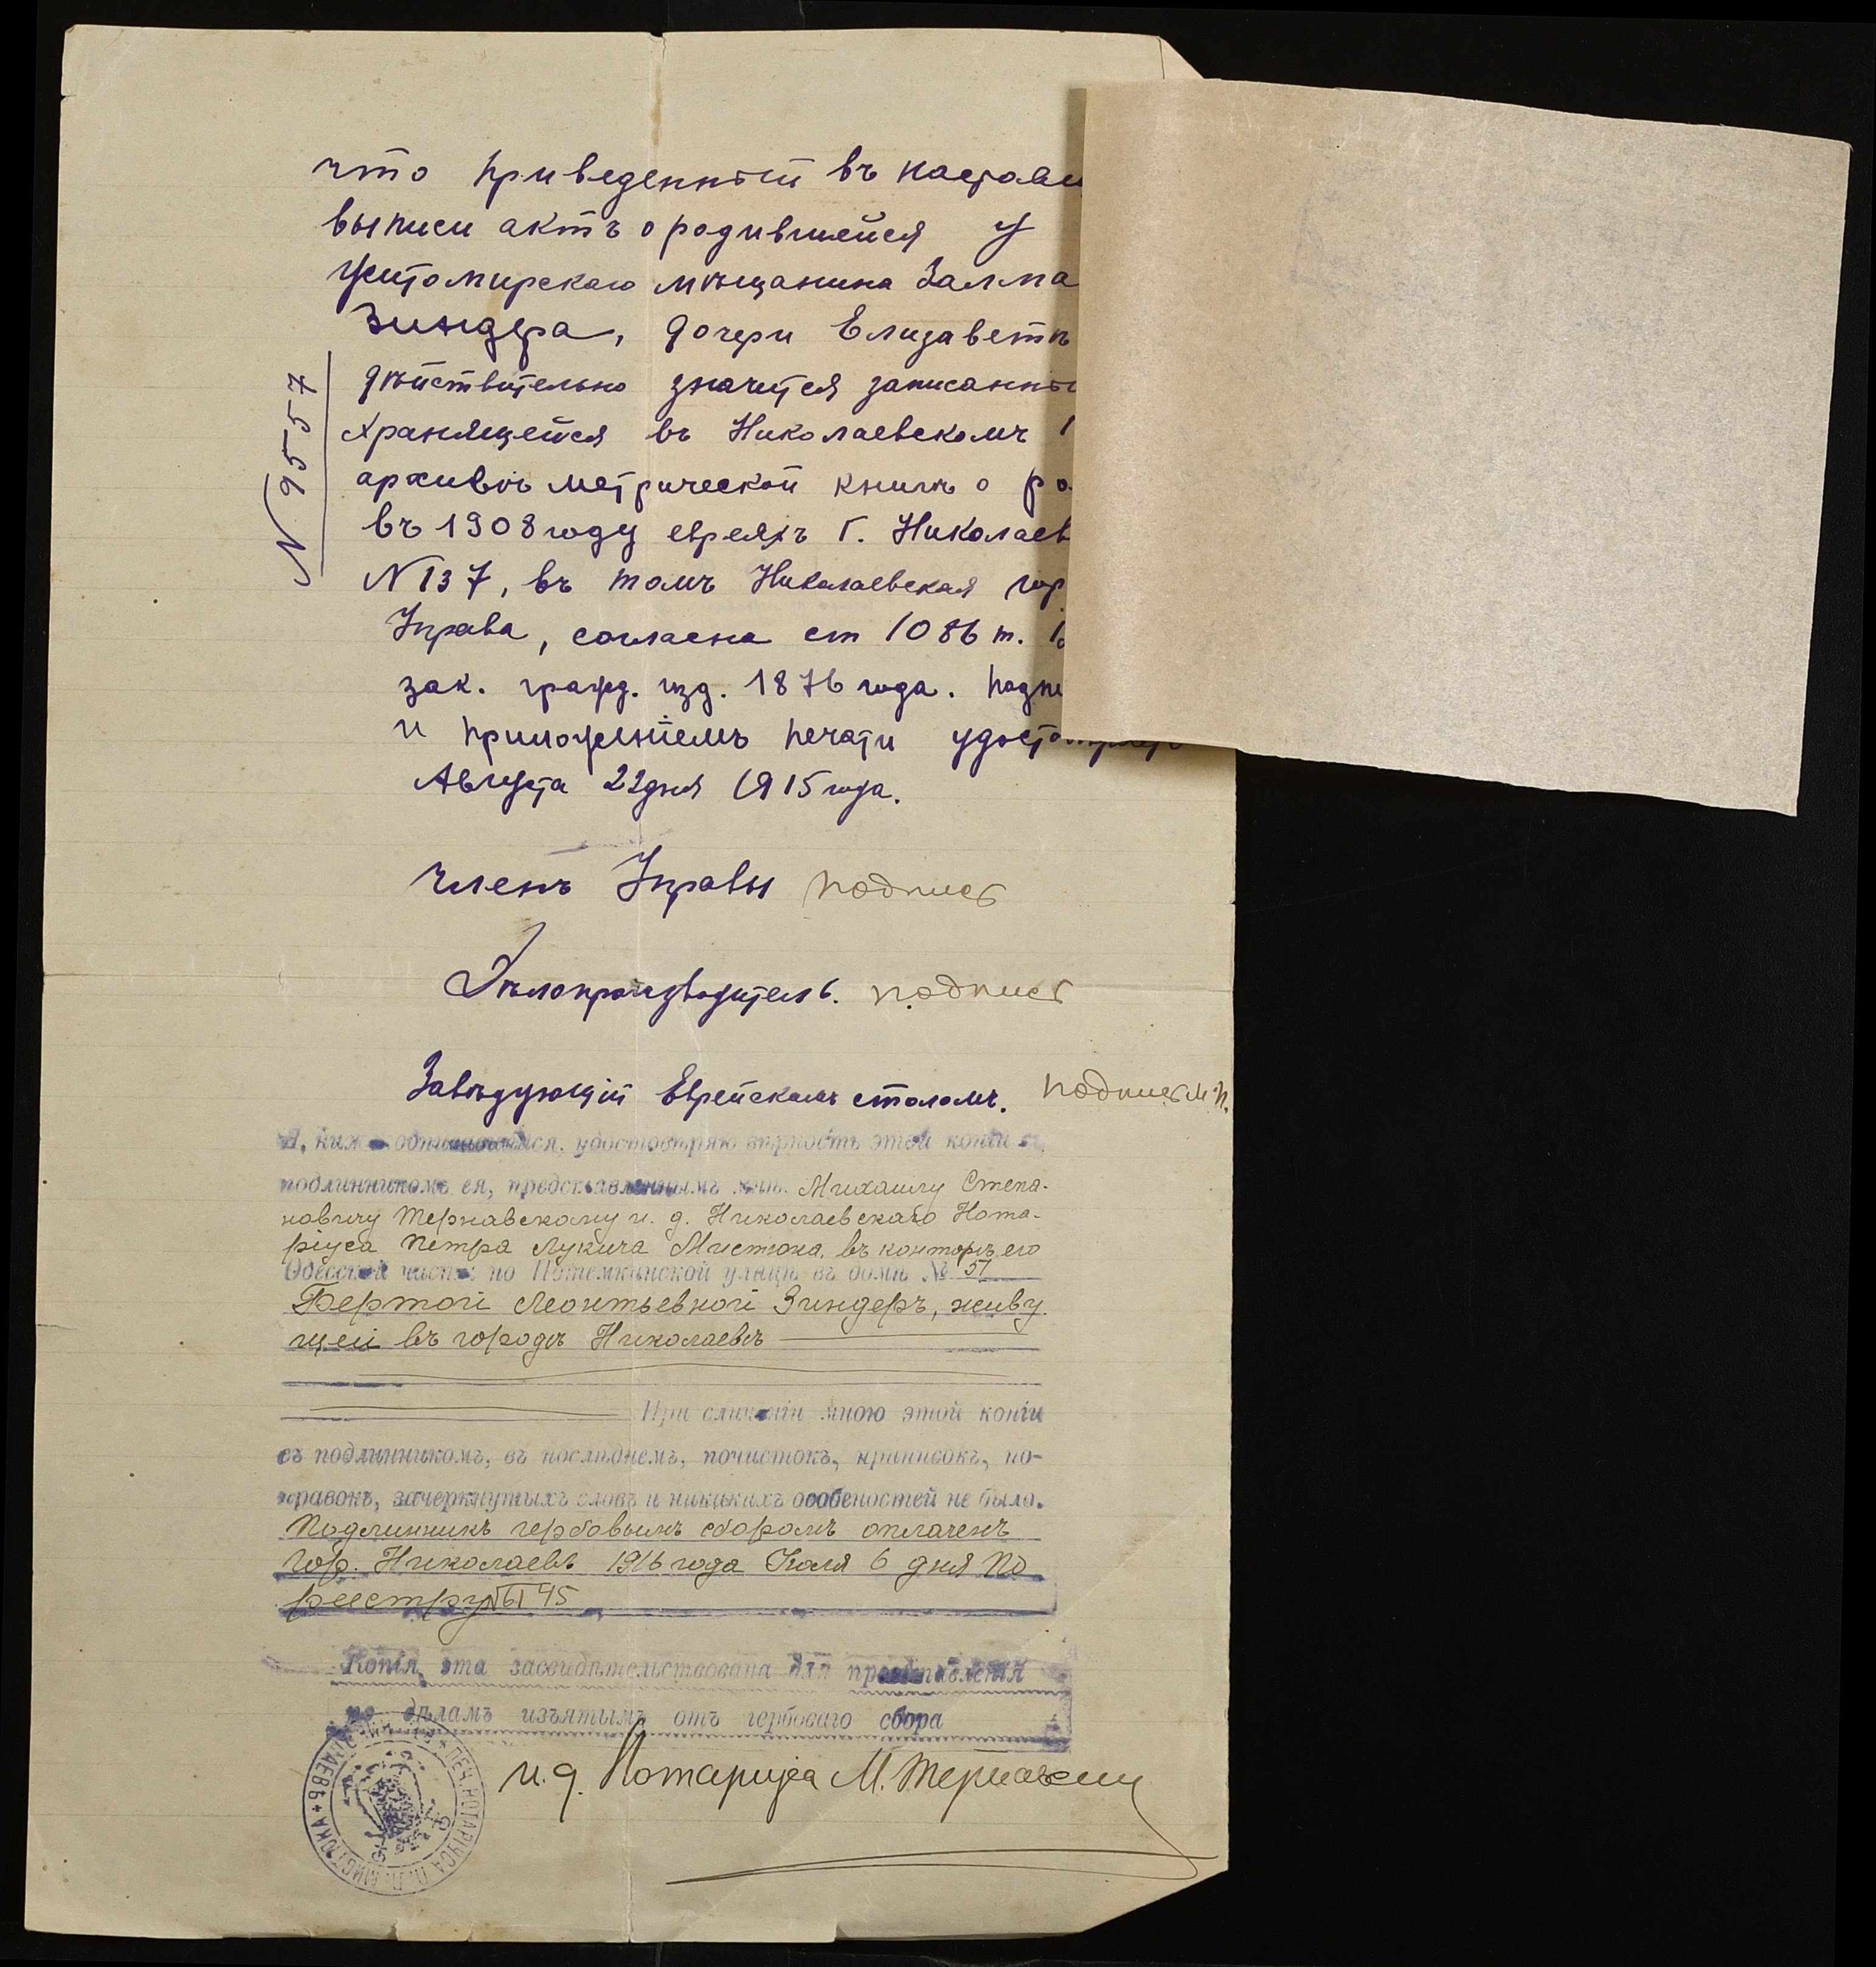 что приведенный въ настоящ
выписи актъ о родившейся у
Житомирскаго мѣщанина Залма
Зиндера, дочери Елизаветѣ
дѣйствительно значится записанны
хранящейся въ Николаевскомъ
архивѣ метрической книгѣ о ро
въ 1908 году евреяхъ г. Николаев
N 137, въ томъ Николаевская гор
Управа, согласна ст 1086 т. 10
зак. гражд. изд. 1876 года. подпи
и приложеніемъ печати удостовѣряетъ
Августа 22 дня 1915 года.
N 9557
Членъ Управы подпись
Дѣлопроизводитель. подпись
Завѣдующій Еврейскомъ столомъ. подпись М. П.
Я, нижеподписавшійся, удостовѣряю вѣрность этой копіи съ
подлинникомъ ея, представленнымъ мнѣ Михаилу Степа-
новичу Тернавскому и. д. Николаевскаго Нота-
ріуса Петра Лукича Мистюка, въ конторѣ его
Одесской части по Потемкинской улицѣ въ домѣ № 51
Бертой Леонтьевной Зиндеръ, живу-
щей въ городѣ Николаевѣ
При сличеніи мною этой копіи
съ подлинникомъ, въ послѣднемъ, почистокъ, приписокъ, по-
правокъ, зачеркнутыхъ словъ и никакихъ особеностей не было.
Подлинникъ гербовымъ сборомъ оплаченъ
Гор. Николаевъ 1916 года Іюля 6 дня По
реестру № 6145
Копія эта засвидѣтельствована для представленія
по дѣламъ изъятымъ отъ гербоваго сбора
и. д. Нотаріуса М. Тернавскій
ПЕЧ. НОТАРІУСА П. Л. МИСТЮКА